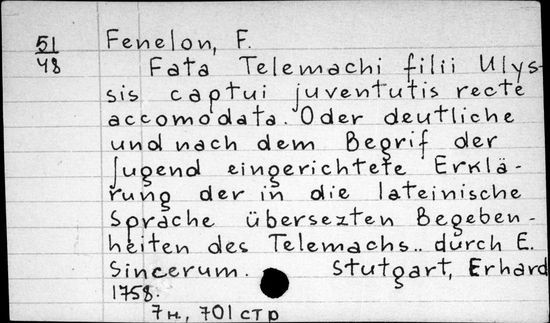 51/48
Fenelon, F.
Fata Telemachi filii Ulys-
sis captui juventutis recte
accomodata. Oder deutliche
und nach dem Begrif der
Jugend eingerichtete Erklä-
rung der in die lateinische
Sprache übersezten Begeben-
heiten des Telemachs.. durch E.
Sincerum. Stutgart, Erhard
1758.
7 н., 701 стр